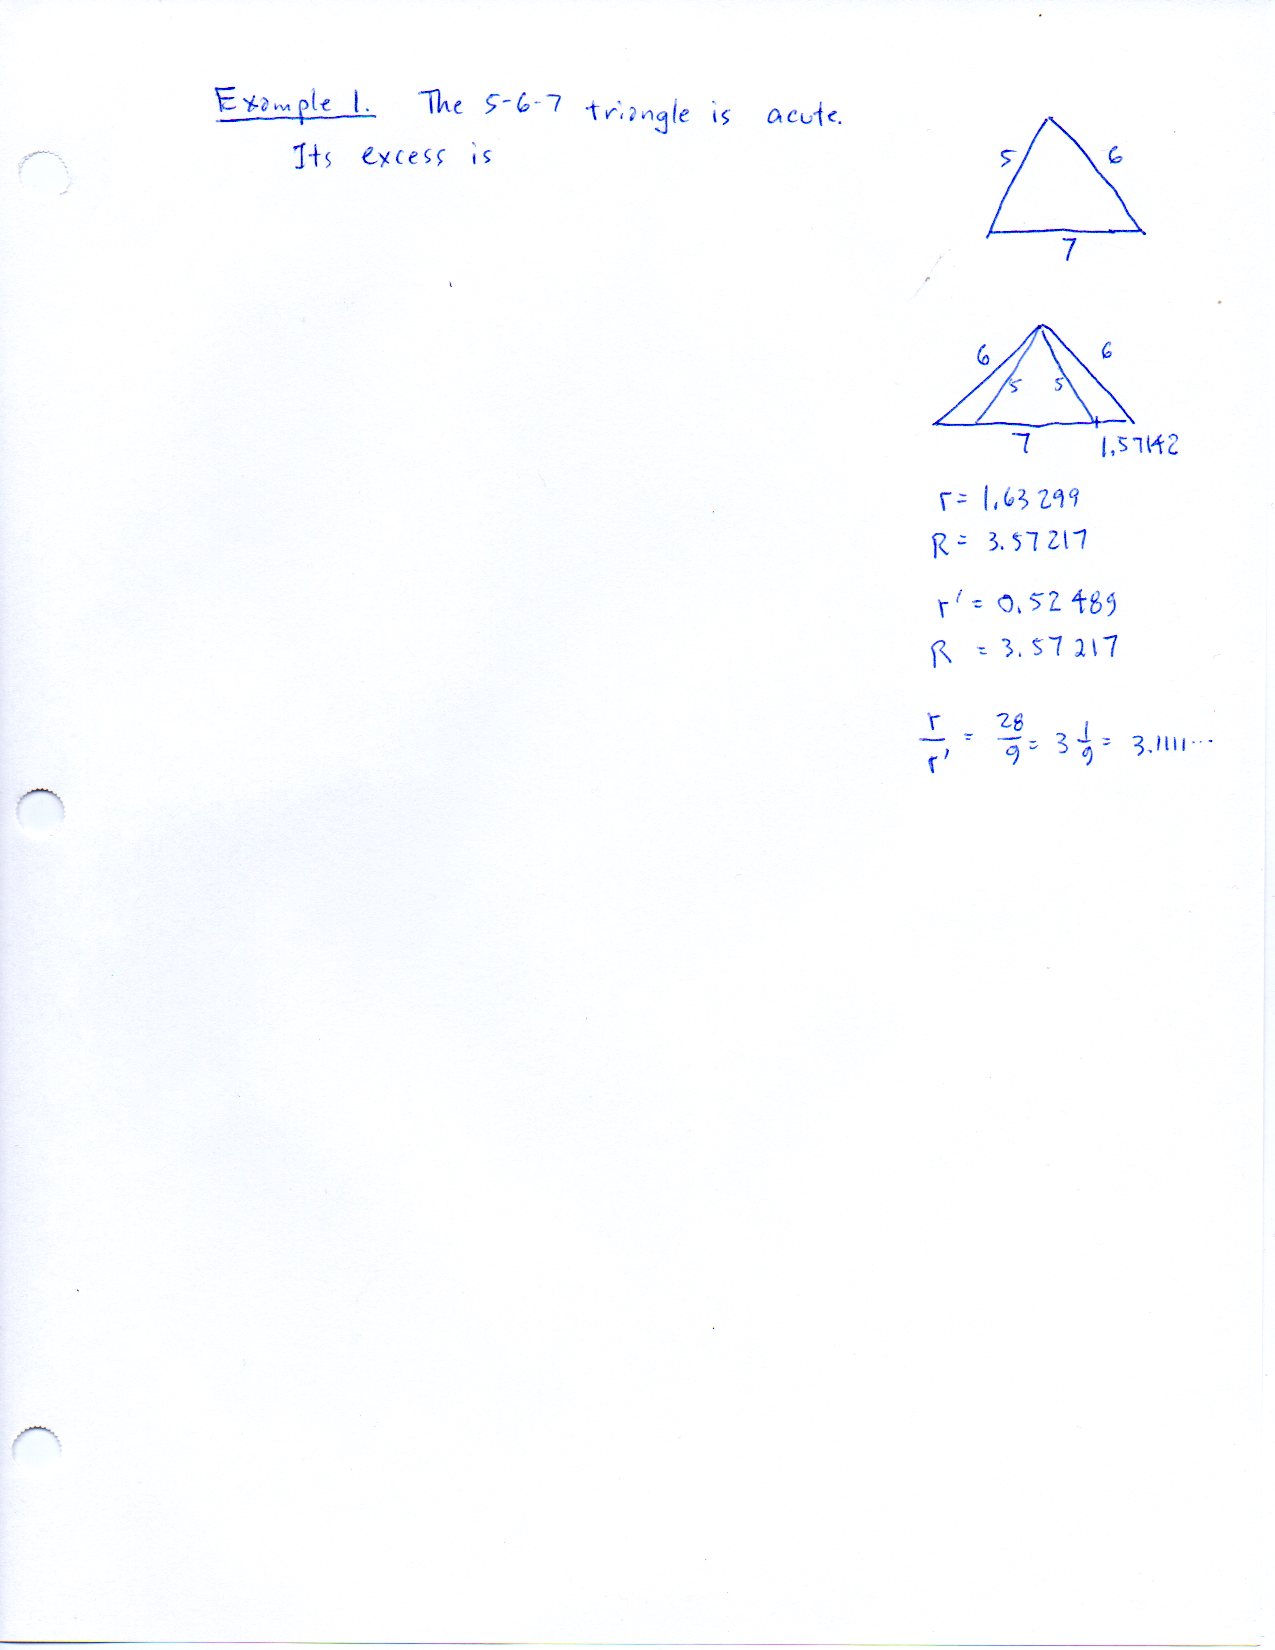 Example 1. The 5-6-7 triangle is acute.
Its excess is
5 6
7
6 6
5 5
7 1.57142
r = 1.63299
R = 3.57217
r' = 0.52489
R = 3.57217
r/r' = 28/9 = 3 1/9 = 3.1111...